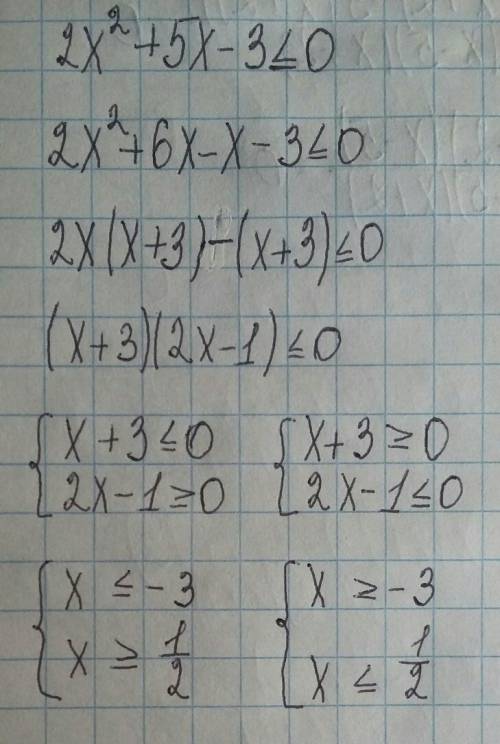 2x² + 5x - 3 ≤ 0
2x² + 6x - x - 3 ≤ 0
2x(x+3) - (x+3) ≤ 0
(x+3)(2x-1) ≤ 0
{ x + 3 ≤ 0 { x + 3 ≥ 0
2x - 1 ≥ 0 2x - 1 ≤ 0
{ x ≤ -3 { x ≥ -3
x ≥ 1/2 x ≤ 1/2